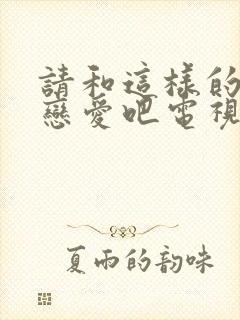 請和這樣的
戀愛吧電視
夏雨的韵味